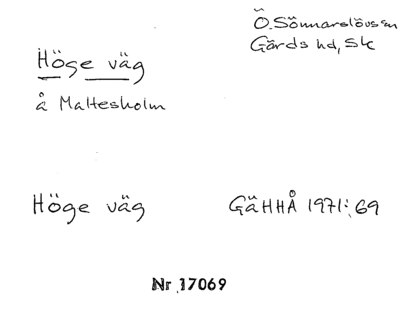 Ö. Sönnarslövs sn
Gärds hd, Sk
Höge väg
å Maltesholm
Höge väg GäHHÅ 1971: 69
Nr 17069